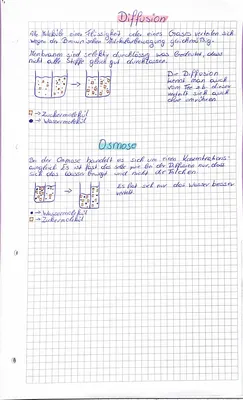 Diffusion
Alle Moleküle einer Flüssigkeit oder eines Gases verteilen sich
wegen der Braunischen Molekularbewegung gleichmäßig.
Membranen sind selektiv durchlässig was bedeutet, dass
nicht alle Stoffe gleich gut durchlassen.
Die Diffusion
kennt man auch
vom Tee ab, dieser
verteilt sich auch
ohne umrühren
→ Zuckermolekül
→ Wassermolekül
Osmose
Bei der Osmose handelt es sich um einen Konzentrations-
ausgleich. Es ist fast das selbe wie bei der Diffusion nur, daß
sich das Wasser bewegt und nicht die Teilchen.
Es hat sich nur das Wasser besser
verteilt.
→ Wassermolekül
→ Zuckermolekül